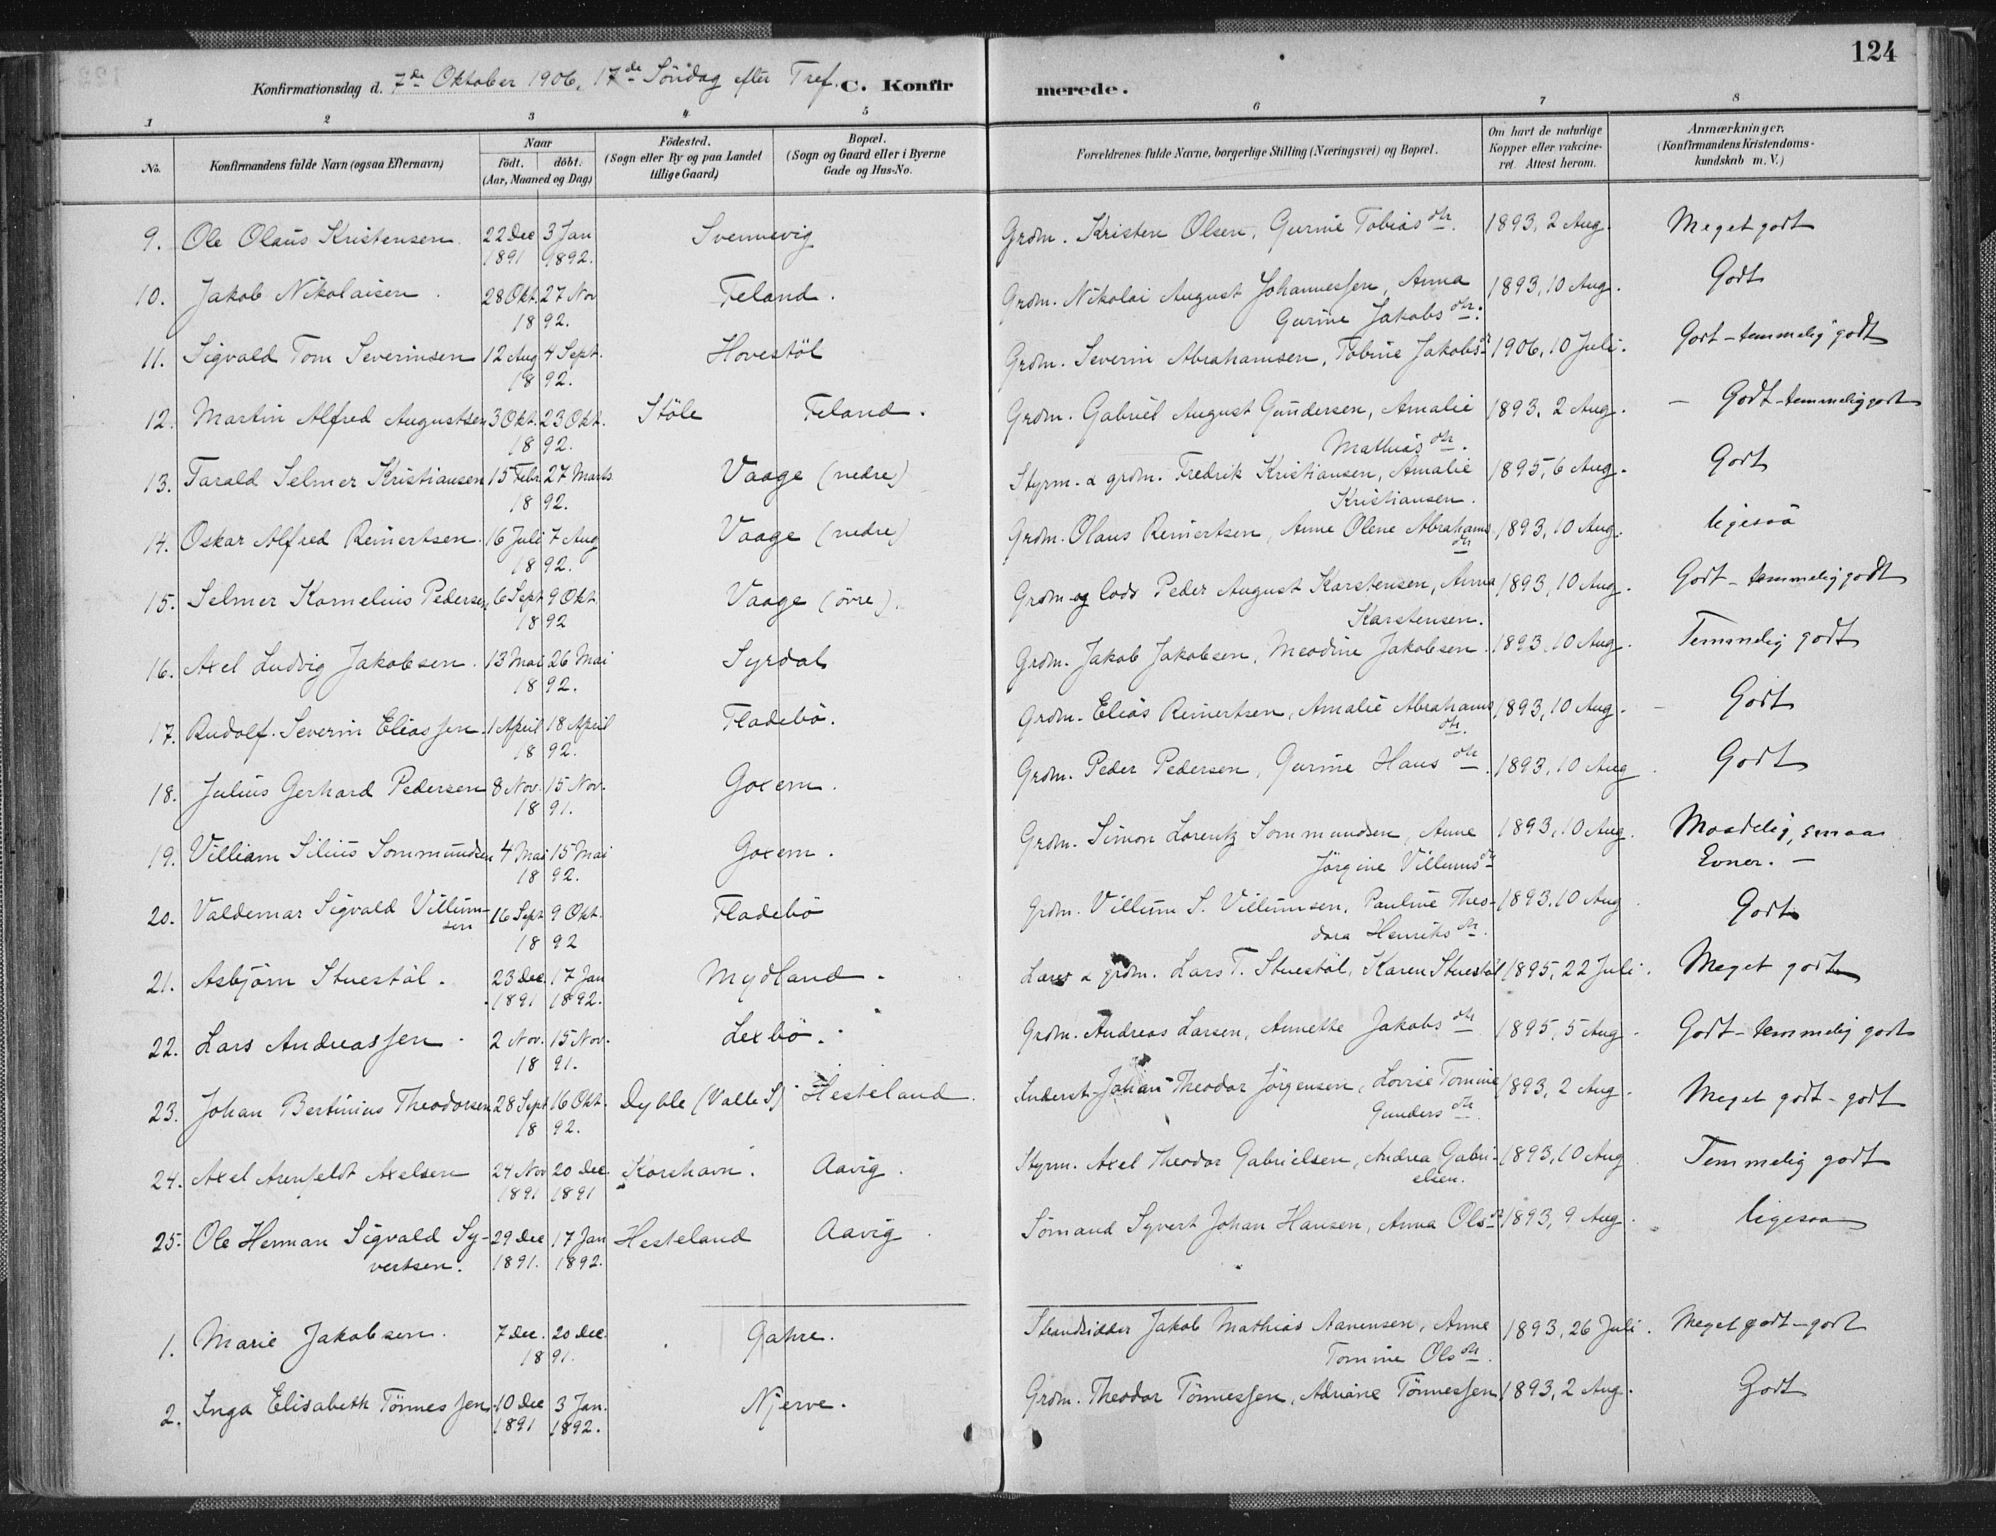 124
Konfirmationsdag d. 7de Oktober 1906, 17de Söndag efter Tref. C. Konfirmerede.
1 2 3 4 5 6 7 8
No. Konfirmandens fulde Navn (ogsaa Efternavn) Naar födt. döbt. (Aar, Maaned og Dag) Födested. (Sogn eller By og paa Landet tillige Gaard) Bopæl. (Sogn og Gaard eller i Byerne Gade og Hus-No. Forældrenes fulde Navne, borgerlige Stilling (Næringsvei) og Bopæl. Om havt de naturlige Kopper eller vakcineret. Attest herom. Anmærkninger. (Konfirmandens Kristendomskundskab m. V.)
9. Ole Olaus Kristensen 22 Dec 1891 3 Jan 1892. Svennevig Grdm. Kristen Olsen, Gurine Tobias dtr. 1893, 2 Aug. Meget godt
10. Jakob Nikolaisen. 28 Okt. 27 Nov 1892. Feland. Grdm. Nikolai August Johannessen, Anna Gurine Jakobs dtr. 1893, 10 Aug. Godt
11. Sigvald Tom Severinsen 12 Aug 4 Sept. 1892. Hovestöl Grdm. Severin Abrahamsen, Tobine Jakobs dtr 1906, 10 Juli. Godt - temmelig godt
12. Martin Alfred Augustsen 3 Okt. 23 Okt. 1892. Stöle Feland. Grdm. Gabriel August Gundersen, Amalie Mathias dtr. 1893. 2 Aug. - Godt - temmelig godt
13. Tarald Selmer Kristiansen 15 Febr 27 Marts 1892. Vaage (nedre) Styrm. & grdm. Fredrik Kristiansen, Amalie Kristiansen. 1895, 6 Aug. Godt
14. Oskar Alfred Reinertsen. 16 Juli 7 Aug 1892. Vaage (nedre) Grdm. Olaus Reinertsen, Anne Olene Abrahams dtr 1893, 10 Aug. ligesaa
15. Selmer Kornelius Pedersen 6 Sept 9 Okt 1892 Vaage (övre). Grdm og lods Peder August Karstensen, Anna Karstensen. 1893, 10 Aug. Godt - temmelig godt
16. Axel Ludvig Jakobsen. 13 Mai 26 Mai 1892. Syrdal Grdm. Jakob Jakobsen, Meodine Jakobsen. 1893, 10 Aug. Temmelig godt
17. Rudolf Severin Eliassen. 1 April 18 April 1892. Fladebö. Grdm. Elias Reinertsen, Amalie Abrahams dtr. 1893, 10 Aug. - Godt
18. Julius Gerhard Pedersen 8 Nov. 15 Nov. 1891. Goxem. Grdm. Peder Pedersen, Gurine Hans dtr. 1893, 10 Aug. Godt
19. Villiam Silius Sommundsen 4 Mai 15 Mai 1892. Goxem. Grdm. Simon Lorentz Sommundsen, Anne Jörgine Villums dtr 1893, 10 Aug. Maadelig, smaa Evner. -
20. Valdemar Sigvald Villumsen 16 Sept 9 Okt. 1892 Fladebö Grdm. Villum S. Villumsen, Pauline Theodora Henriks dtr. 1893, 10 Aug Godt
21. Asbjörn Stuestöl. 23 Dec. 1891 17 Jan 1892. Mydland. Lærer & grdm. Lars T. Stuestöl, Karen Stuestöl 1895, 22 Juli. Meget godt
22. Lars Andreassen. 2 Nov. 15 Nov. 1891. Lexbö. Grdm. Andreas Larsen, Annette Jakobs dtr 1895, 5 Aug. Godt - temmelig godt
23. Johan Bertinius Theodorsen 28 Sept 16 Okt. 1892. Dyble (Valle S) Hesteland. Inderst. Johan Theodor Jörgensen, Lovise Tomine Gunders dtr. 1893, 2 Aug. Meget godt - godt
24. Axel Arenfeldt Axelsen 24 Nov 1891 20 Dec 1891 Korshavn. Aavig. Styrm. Axel Theodor Gabrielsen, Andrea Gabrielsen. 1893, 10 Aug Temmelig godt
25. Ole Herman Sigvald Syvertsen. 29 Dec 1891. 17 Jan 1892. Hesteland Aavig. Sömand Syvert Johan Hansen, Anna Ols dtr 1893, 9 Aug. ligesaa
1. Marie Jakobsen. 7 Dec. 20 Dec. 1891. Gahre. Strandsidder Jakob Mathias Aanensen, Anne Tomine Ols dtr. 1893, 26 Juli. Meget godt - godt
2. Inga Elisabeth Tönnessen 10 Dec 1891 3 Jan. 1892. Njerve. Grdm. Theodor Tönnessen, Adriane Tönnessen 1893, 2 Aug. Godt